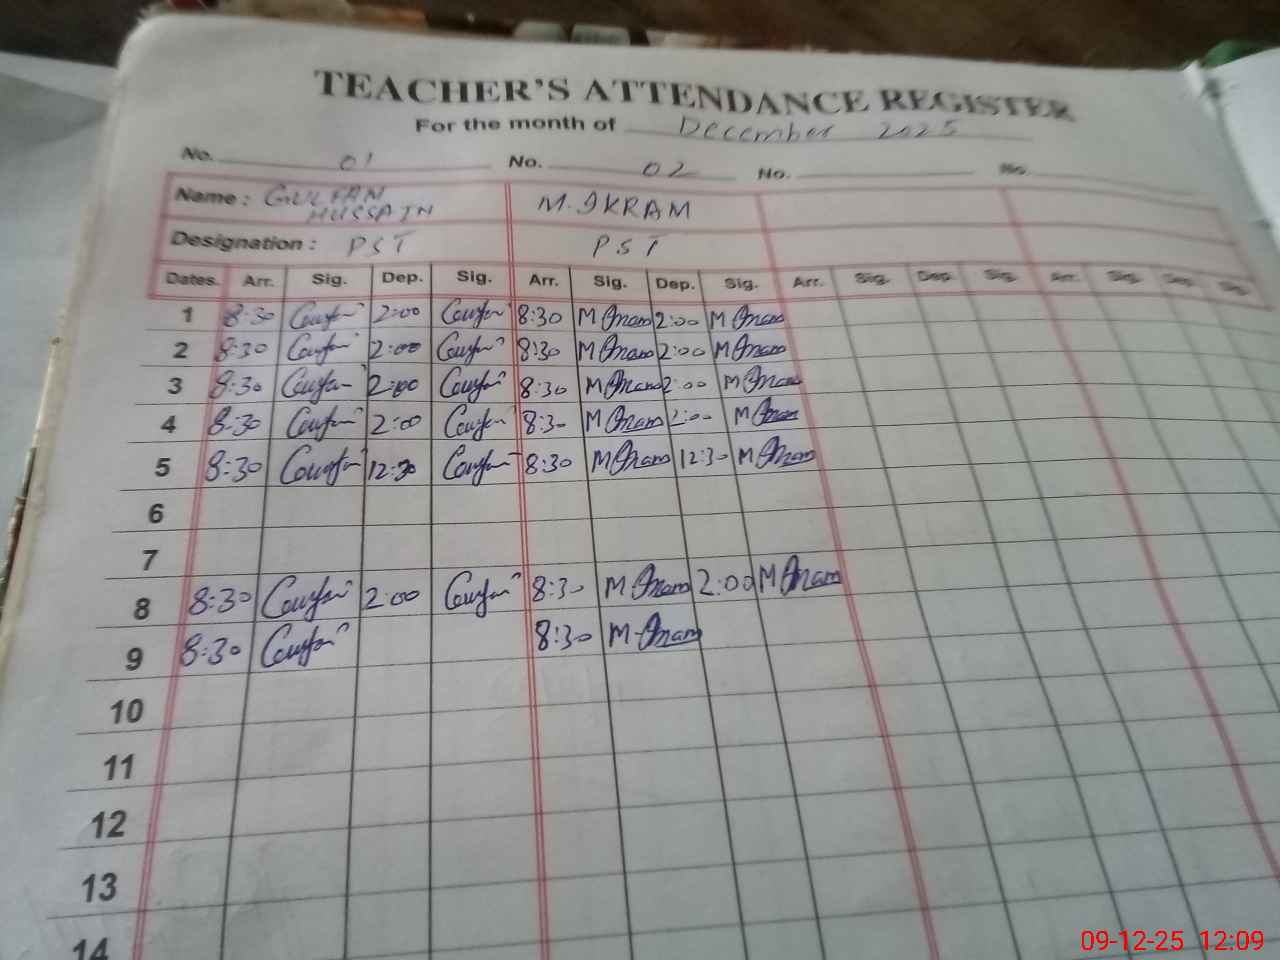 TEACHER'S ATTENDANCE REGISTER
For the month of December 2025
No. 01 No. 02 No. No.
Name : GULFAN HUSSAIN M. IKRAM
Designation : PST PST
Dates. Arr. Sig. Dep. Sig. Arr. Sig. Dep. Sig. Arr. Sig. Dep. Sig. Arr. Sig. Dep. Sig.
1 8:30 2:00 8:30 2:00
2 8:30 2:00 8:30 2:00
3 8:30 2:00 8:30 2:00
4 8:30 2:00 8:30 2:00
5 8:30 12:30 8:30 12:30
6
7
8 8:30 2:00 8:30 2:00
9 8:30 8:30
10
11
12
13
14
09-12-25 12:09